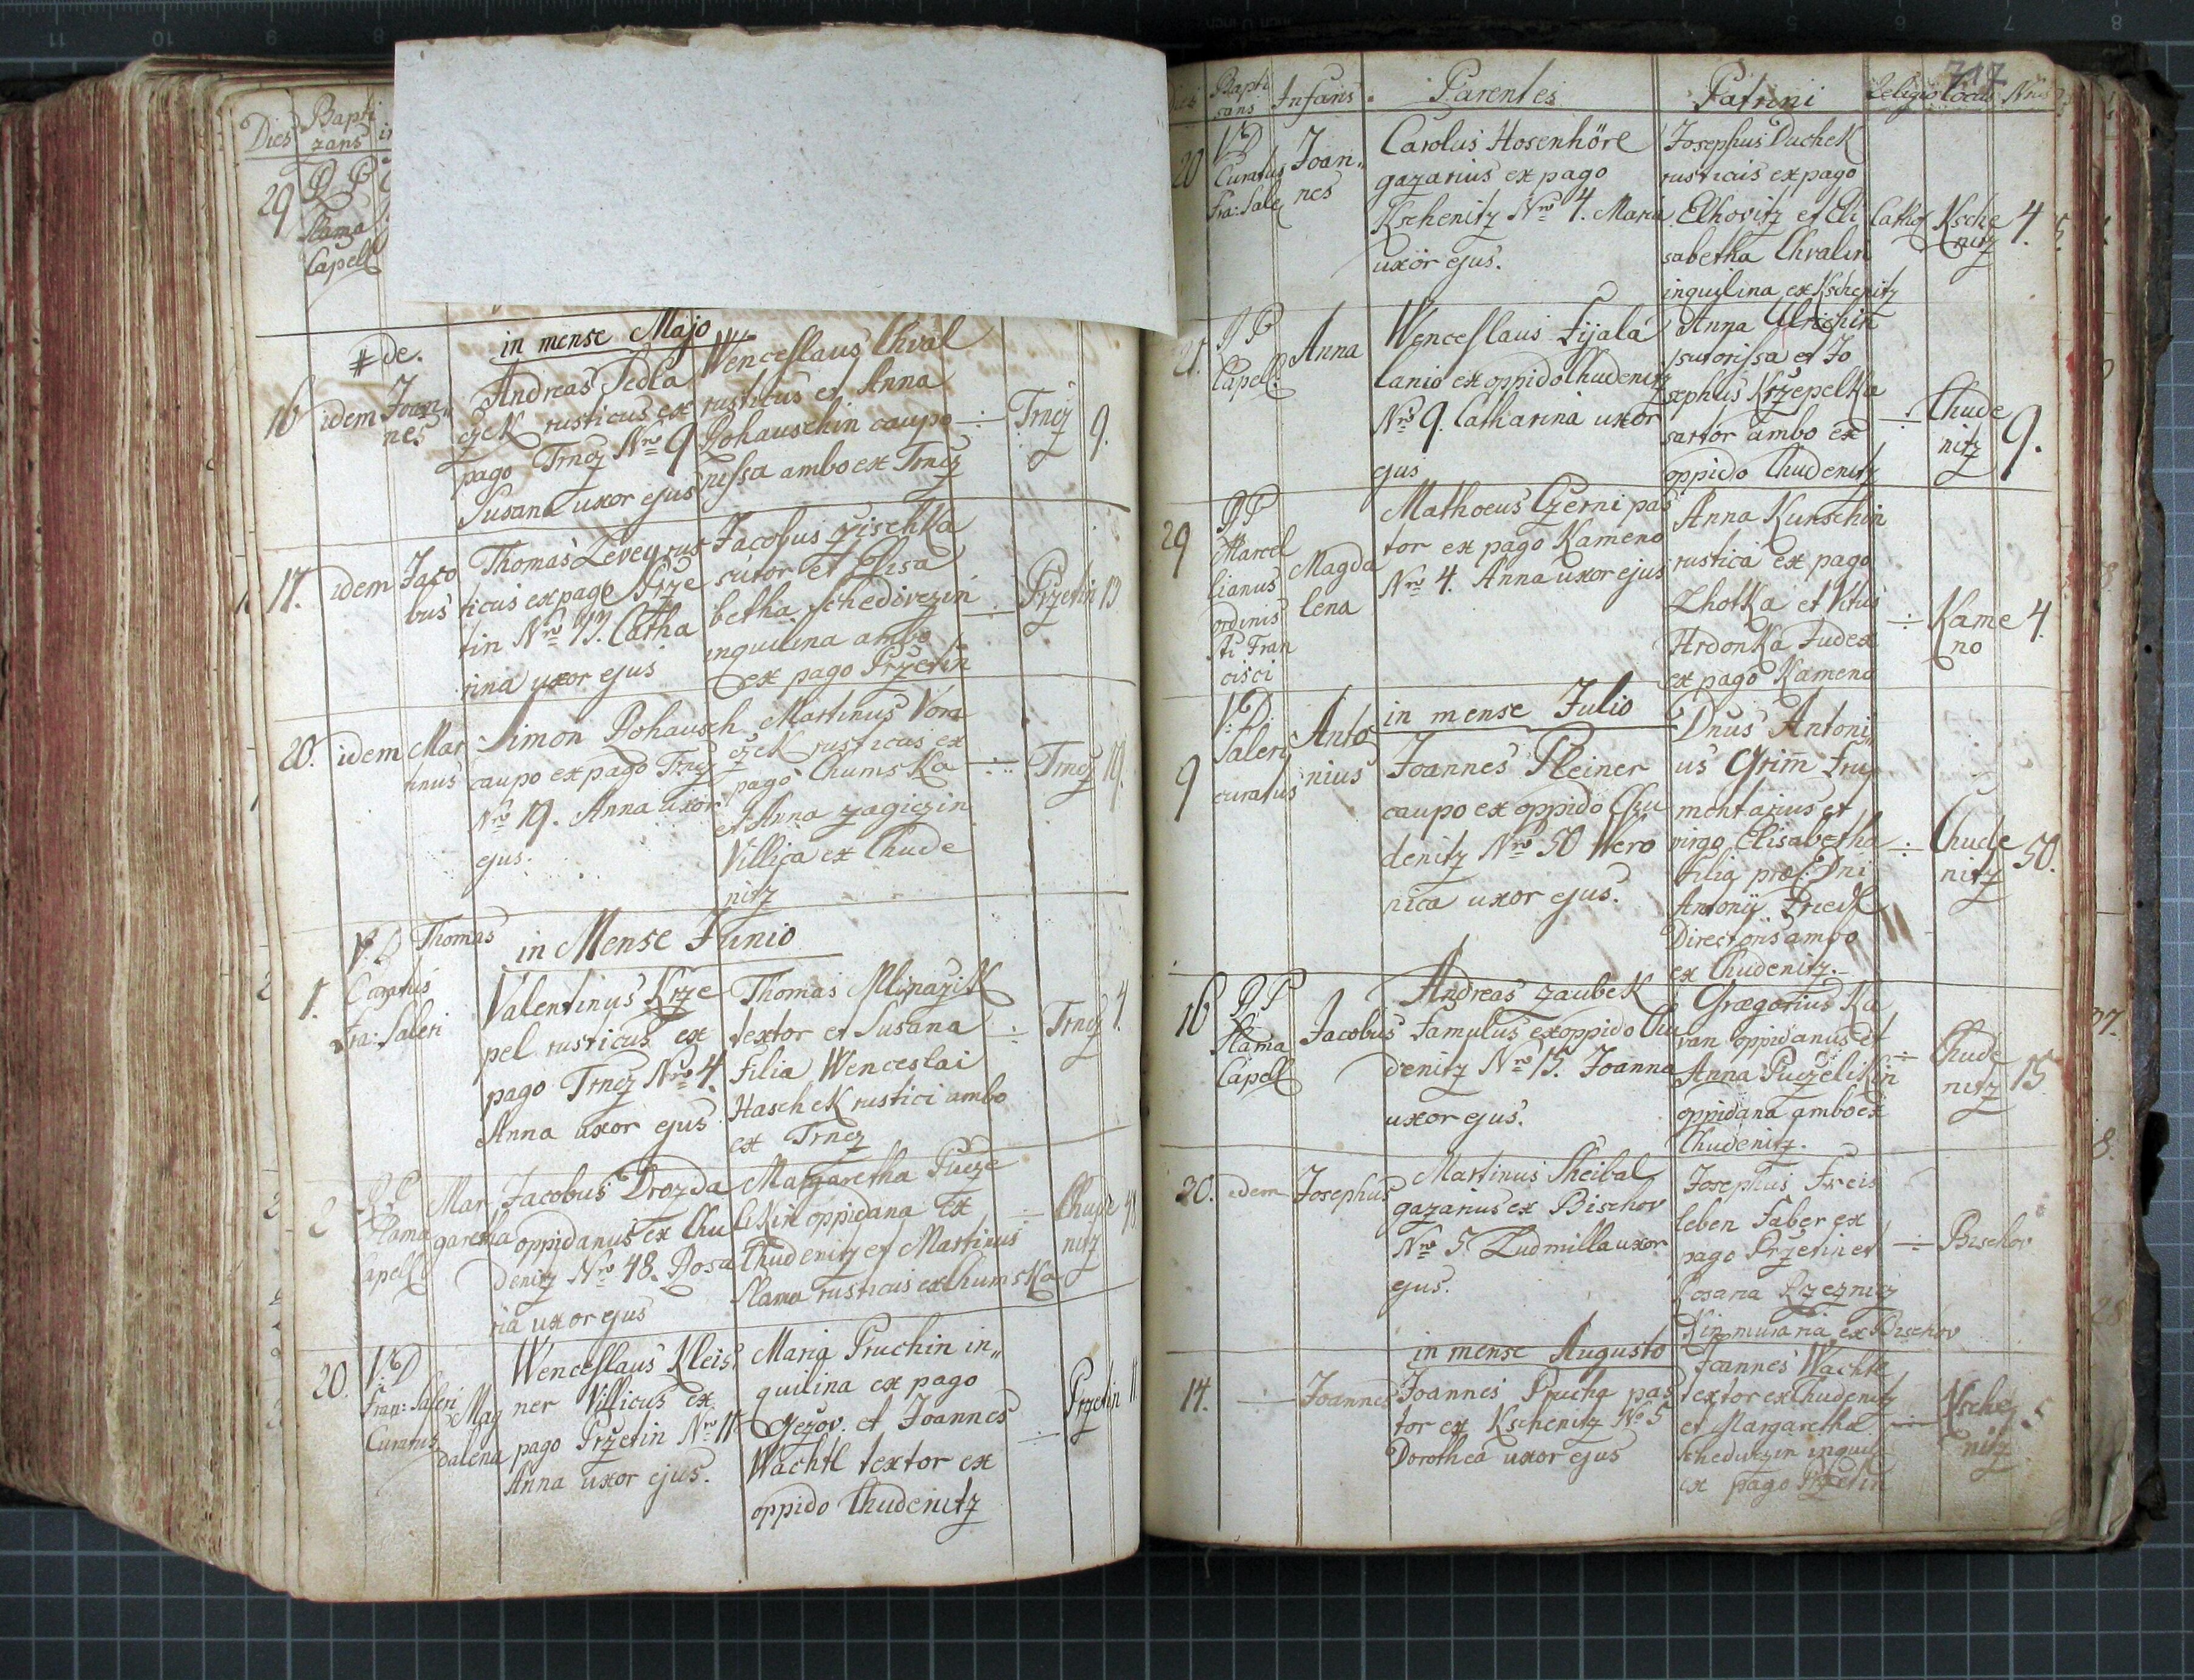 Dies Bapti
zans
29 P P
Slama
Capell
in mense Majo
de.
16 idem Joan„
nes
Andreas Sedla
czek rusticus ex
pago Trncz Nro 9
Susana uxor ejus
Wenceslaus Chval
rusticus et Anna
Pohauschin caupo
nissa ambo ex Trncz
Trncz 9.
17. idem Jaco
bus
Thomas Levey rus
ticus ex pago Prze
tin Nro 13. Catha
rina uxor ejus
Jacobus Zischka
sutor et Elisa
betha Schedivezin
inquilina ambo
ex pago Przetin
Przetin 13
20. idem Mar
tinus
Simon Pohausch
caupo ex pago Trncz
Nro 19. Anna uxor
ejus.
Martinus Vora
czek rusticus ex
pago Chumska
et Anna Zagiczin
Villica ex Chude
nitz
Trncz 19.
in Mense Junio
1. V. D
Curatus
Fra: Saleri
Thomas
Valentinus Krze
pel rusticus ex
pago Trncz Nro 4.
Anna uxor ejus
Thomas Mlinarzik
textor et Susana
Filia Wenceslai
Haschek rustici ambo
ex Trncz
Trncz 4.
2 P P
Slama
Capell
Mar
garetha
Jacobus Drozda
oppidanus ex Chu
denitz Nro 48. Rosa
ria uxor ejus
Margaretha Pucze
likin oppidana ex
Chudenitz et Martinus
Slama rusticus ex Chumska
Chude
nitz 48
20. V. D
Fran: Saleri
Curatus
Mag
dalena
Wenceslaus Kleis
ner Villicus ex
pago Przetin Nro 11
Anna uxor ejus.
Maria Pruchin in„
quilina ex pago
et Joannes
Wachtl textor ex
oppido Chudenitz
Przetin 11.
717
Dies Bapti
sans Infans Parentes Patrini Religio Locus Nrus
20 V. D
Curatus
Fra: Sale
Joan„
nes
Carolus Hosenhöre
gazarius ex pago
Kschenitz Nro 4. Maria
uxor ejus.
Josephus Duchek
rusticus ex pago
Elhovitz et Eli
sabetha Chvalin
inquilina ex Kschenitz
Cathol Ksche
nitz 4.
21. P P
Capell.
Anna
Wenceslaus Fijala
lanio ex oppido Chudenitz
Nro 9. Catharina uxor
ejus
Anna Ulrichin
sutorissa et Jo
sephus Krzepelka
sartor ambo ex
oppido Chudenitz
Chude
nitz 9.
29 P P
Marcel
lianus
ordinis
Sti Fran
cisci
Magda
lena
Mathoeus Czerni pas
tor ex pago Kameno
Nro 4. Anna uxor ejus
Anna Kunschin
rustica ex pago
Lhotka et Vitus
Hrdonka Judex
ex pago Kameno
Kame
no 4.
in mense Julio
9 V. D
Saleri
curatus
Anto
nius
Joannes Pleiner
caupo ex oppido Chu
denitz Nro 50 Wero
nica uxor ejus.
Dnus Antoni„
us Grim̅ Fru
mentarius et
virgo Elisabetha
Filia præf. Dni
Antonij Friedl
Directoris ambo
ex Chudenitz.
Chude
nitz 50.
16 P P
Slama
Capell
Jacobus
Andreas Zaubek
famulus ex oppido Chu
denitz Nro 15. Joanna
uxor ejus.
Grægorius Ka
van oppidanus et
Anna Puczelikin
oppidana ambo ex
Chudenitz.
Chude
nitz 15
20. idem Josephus
Martinus Skeibal
gazarius ex Bischov
Nro 5. Ludmilla uxor
ejus.
Josephus Freis
leben Faber ex
pago Przetin et
Rosaria Rzeznicz
kin muraria ex Bischov
Bischov
in mense Augusto
14. Joannes
Joannes Prucha pas
tor ex Kschenitz No 5
Dorothea uxor ejus
Joannes Wachtl
textor ex Chudenitz
et Margaretha
Schedivezin inquil
ex pago Przetin
Ksche
nitz 5